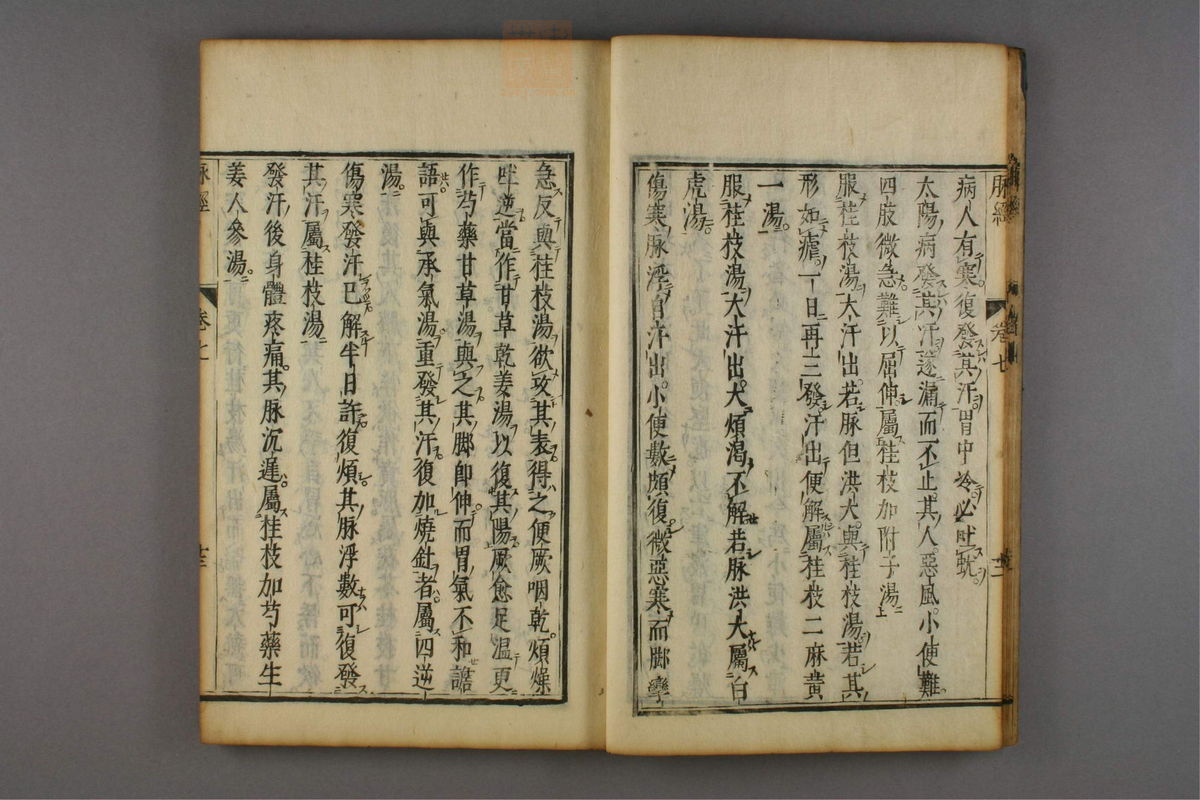 脉經 卷七 十二
病人有寒復發其汗胃中冷必吐蚘
太陽病發其汗遂漏而不止其人惡風小便難
四肢微急難以屈伸屬桂枝加附子湯
服桂枝湯大汗出若脉但洪大與桂枝湯若其
形如瘧一日再三發汗出便解屬桂枝二麻黄
一湯
服桂枝湯大汗出大煩渴不解若脉洪大屬白
虎湯
傷寒脉浮自汗出小便數頗復微惡寒而脚攣
急反與桂枝湯欲攻其表得之便厥咽乾煩燥
吐逆當作甘草乾姜湯以復其陽厥愈足温更
作芍藥甘草湯與之其脚即伸而胃氣不和讝
語可與承氣湯重發其汗復加燒針者屬四逆
湯
傷寒發汗已解半日許復煩其脉浮數可復發
其汗屬桂枝湯
發汗後身體疼痛其脉沉遲屬桂枝加芍藥生
姜人參湯
脉經 卷七 十三